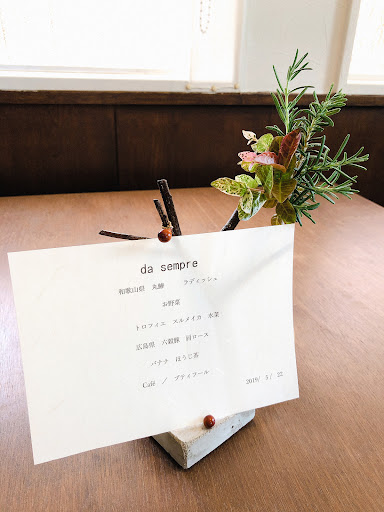 da sempre
和歌山県 丸鯵 ラディッシュ
お野菜
トロフィエ スルメイカ 水菜
広島県 六穀豚 肩ロース
バナナ ほうじ茶
Café / プティフール
2019/ 5/ 22